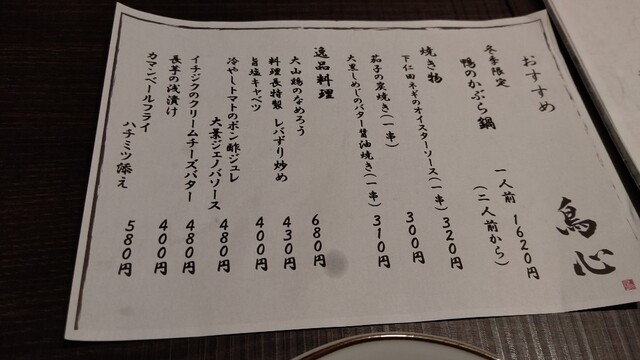 おすすめ
鳥心
冬季限定
鴨のかぶら鍋 一人前 1620円
(二人前から)
焼き物
下仁田ネギのオイスターソース(一串) 320円
茄子の炭焼き(一串) 300円
大黒しめじのバター醤油焼き(一串) 310円
逸品料理
大山鶏のなめろう 680円
料理長特製 レバずり炒め 430円
旨塩キャベツ 400円
冷やしトマトのポン酢ジュレ
大葉ジェノバソース 480円
イチジクのクリームチーズバター 480円
長芋の浅漬け 400円
カマンベールフライ
ハチミツ添え 580円